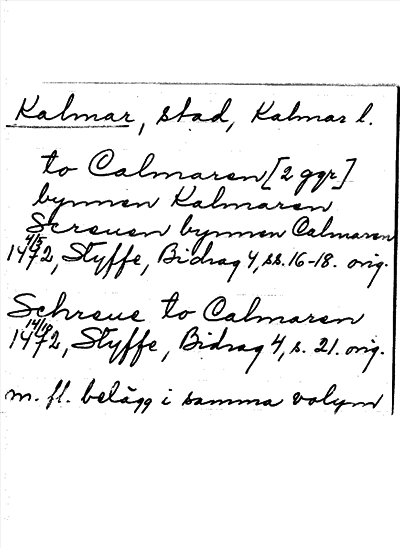 Kalmar, stad, Kalmar l.
to Calmaren [2 ggr.]
bynnen Kalmaren
Screuen bynnen Calmaren
4/5
1472, Styffe, Bidrag 4, ss. 16-18. orig.
Schreue to Calmaren
14/10
1472, Styffe, Bidrag 4, s. 21. orig.
m. fl. belägg i samma volym